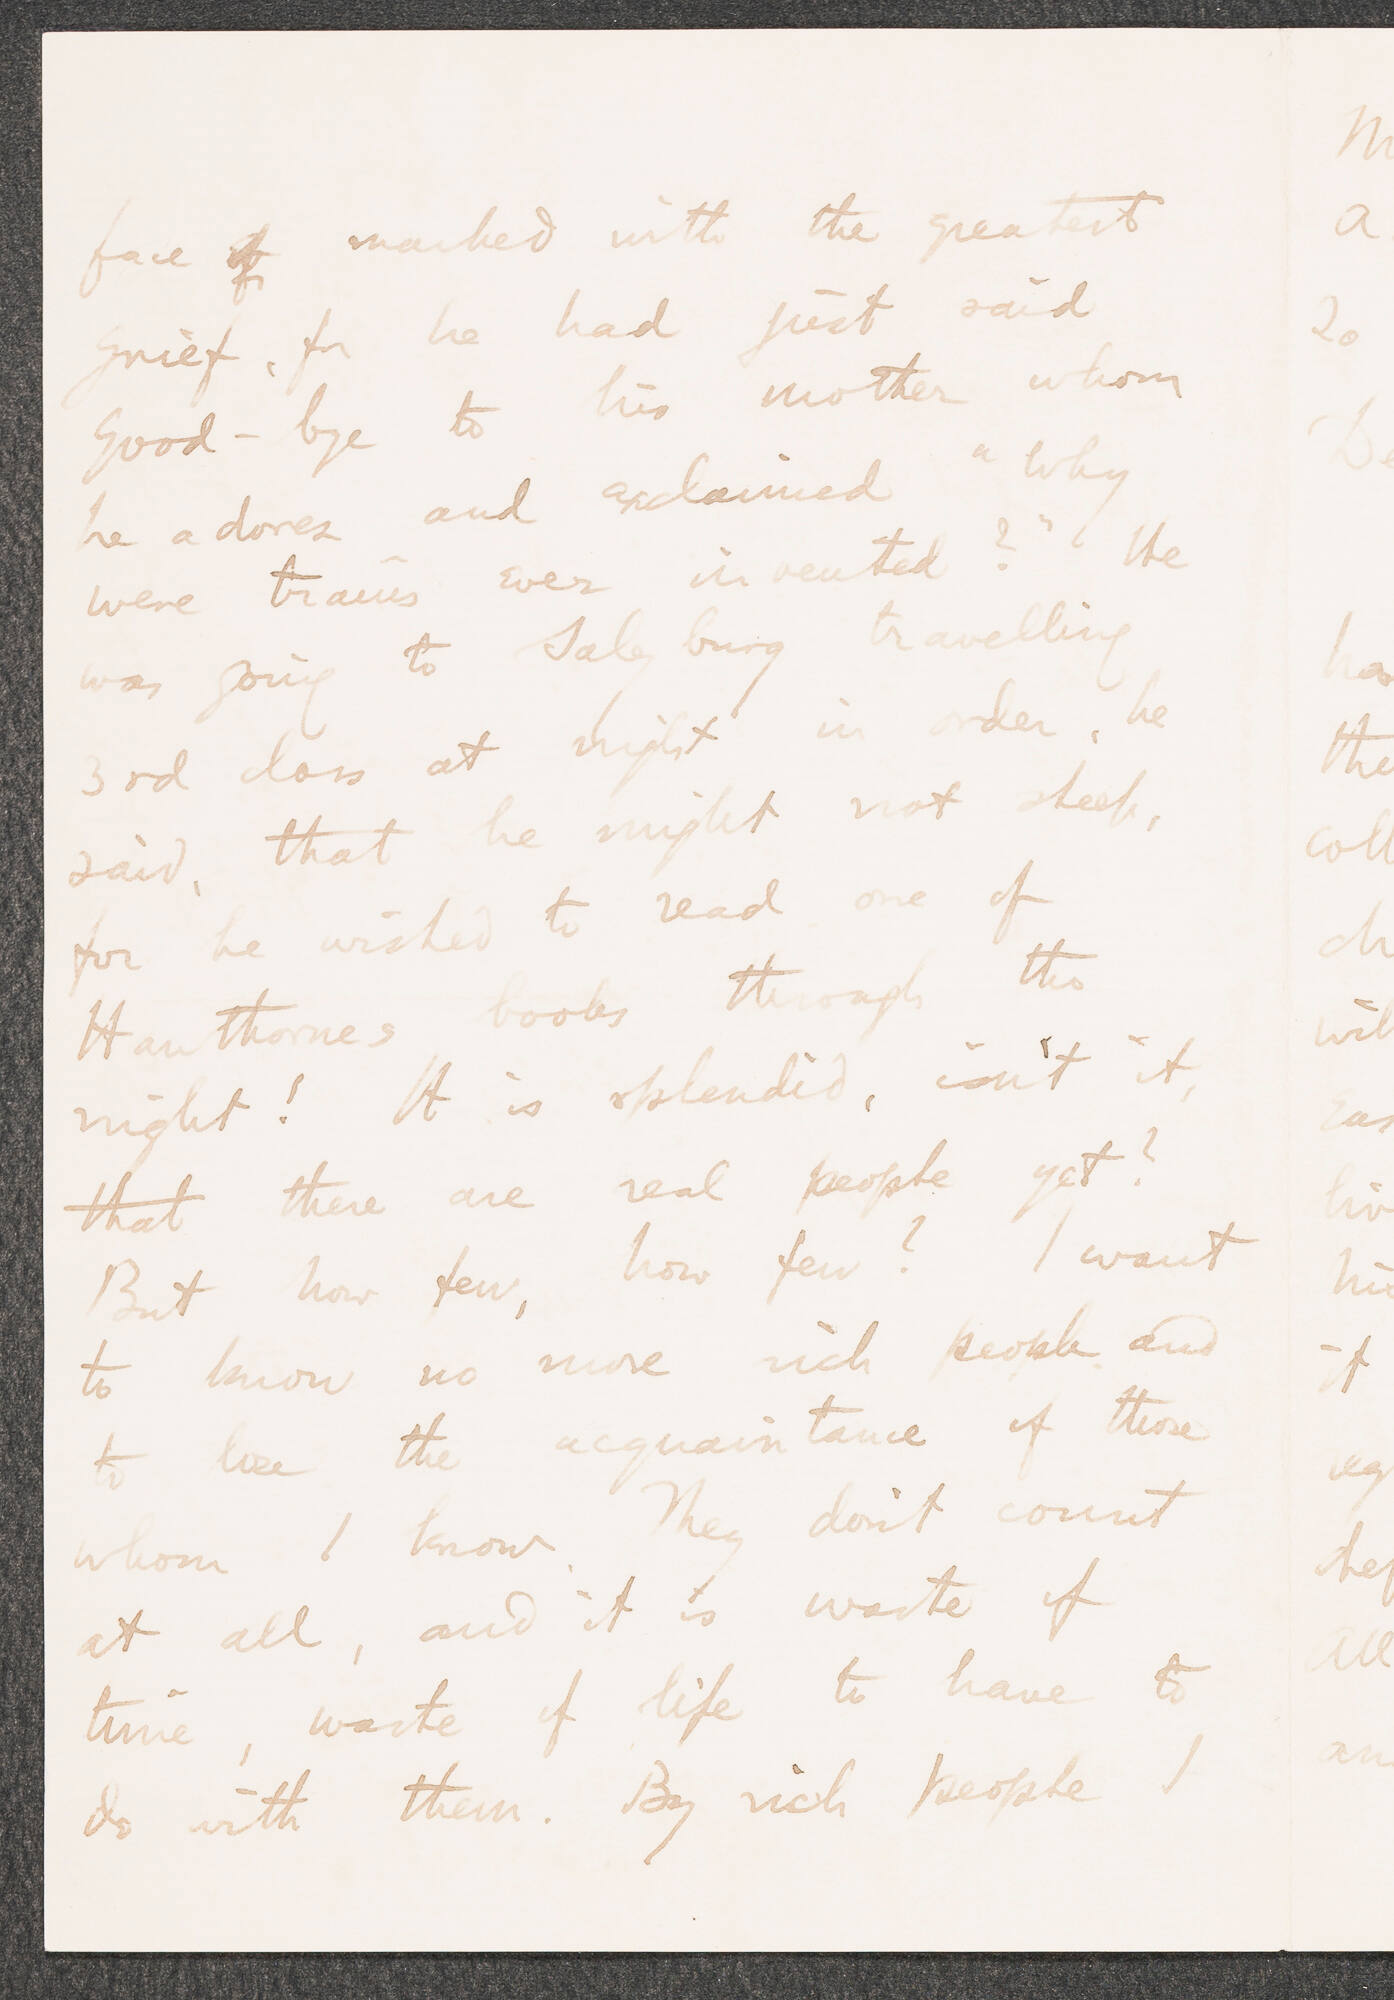 face marked with the greatest
grief, for he had just said
good-bye to his mother whom
he adores and exclaimed "Why
were trains ever invented?" He
was going to Salzburg travelling
3rd class at night in order, he
said, that he might not sleep,
for he wished to read one of
Hawthornes books through the
night! It is splendid, isn't it,
that there are real people yet?
But how few, how few? I want
to know no more rich people and
to lose the acquaintance of those
whom I know. They don't count
at all, and it is waste of
time, waste of life to have to
do with them. By rich people I
M
a
20
De
ha
the
coll
ch
wil
Eas
liv
his
it
reg
def
all
an